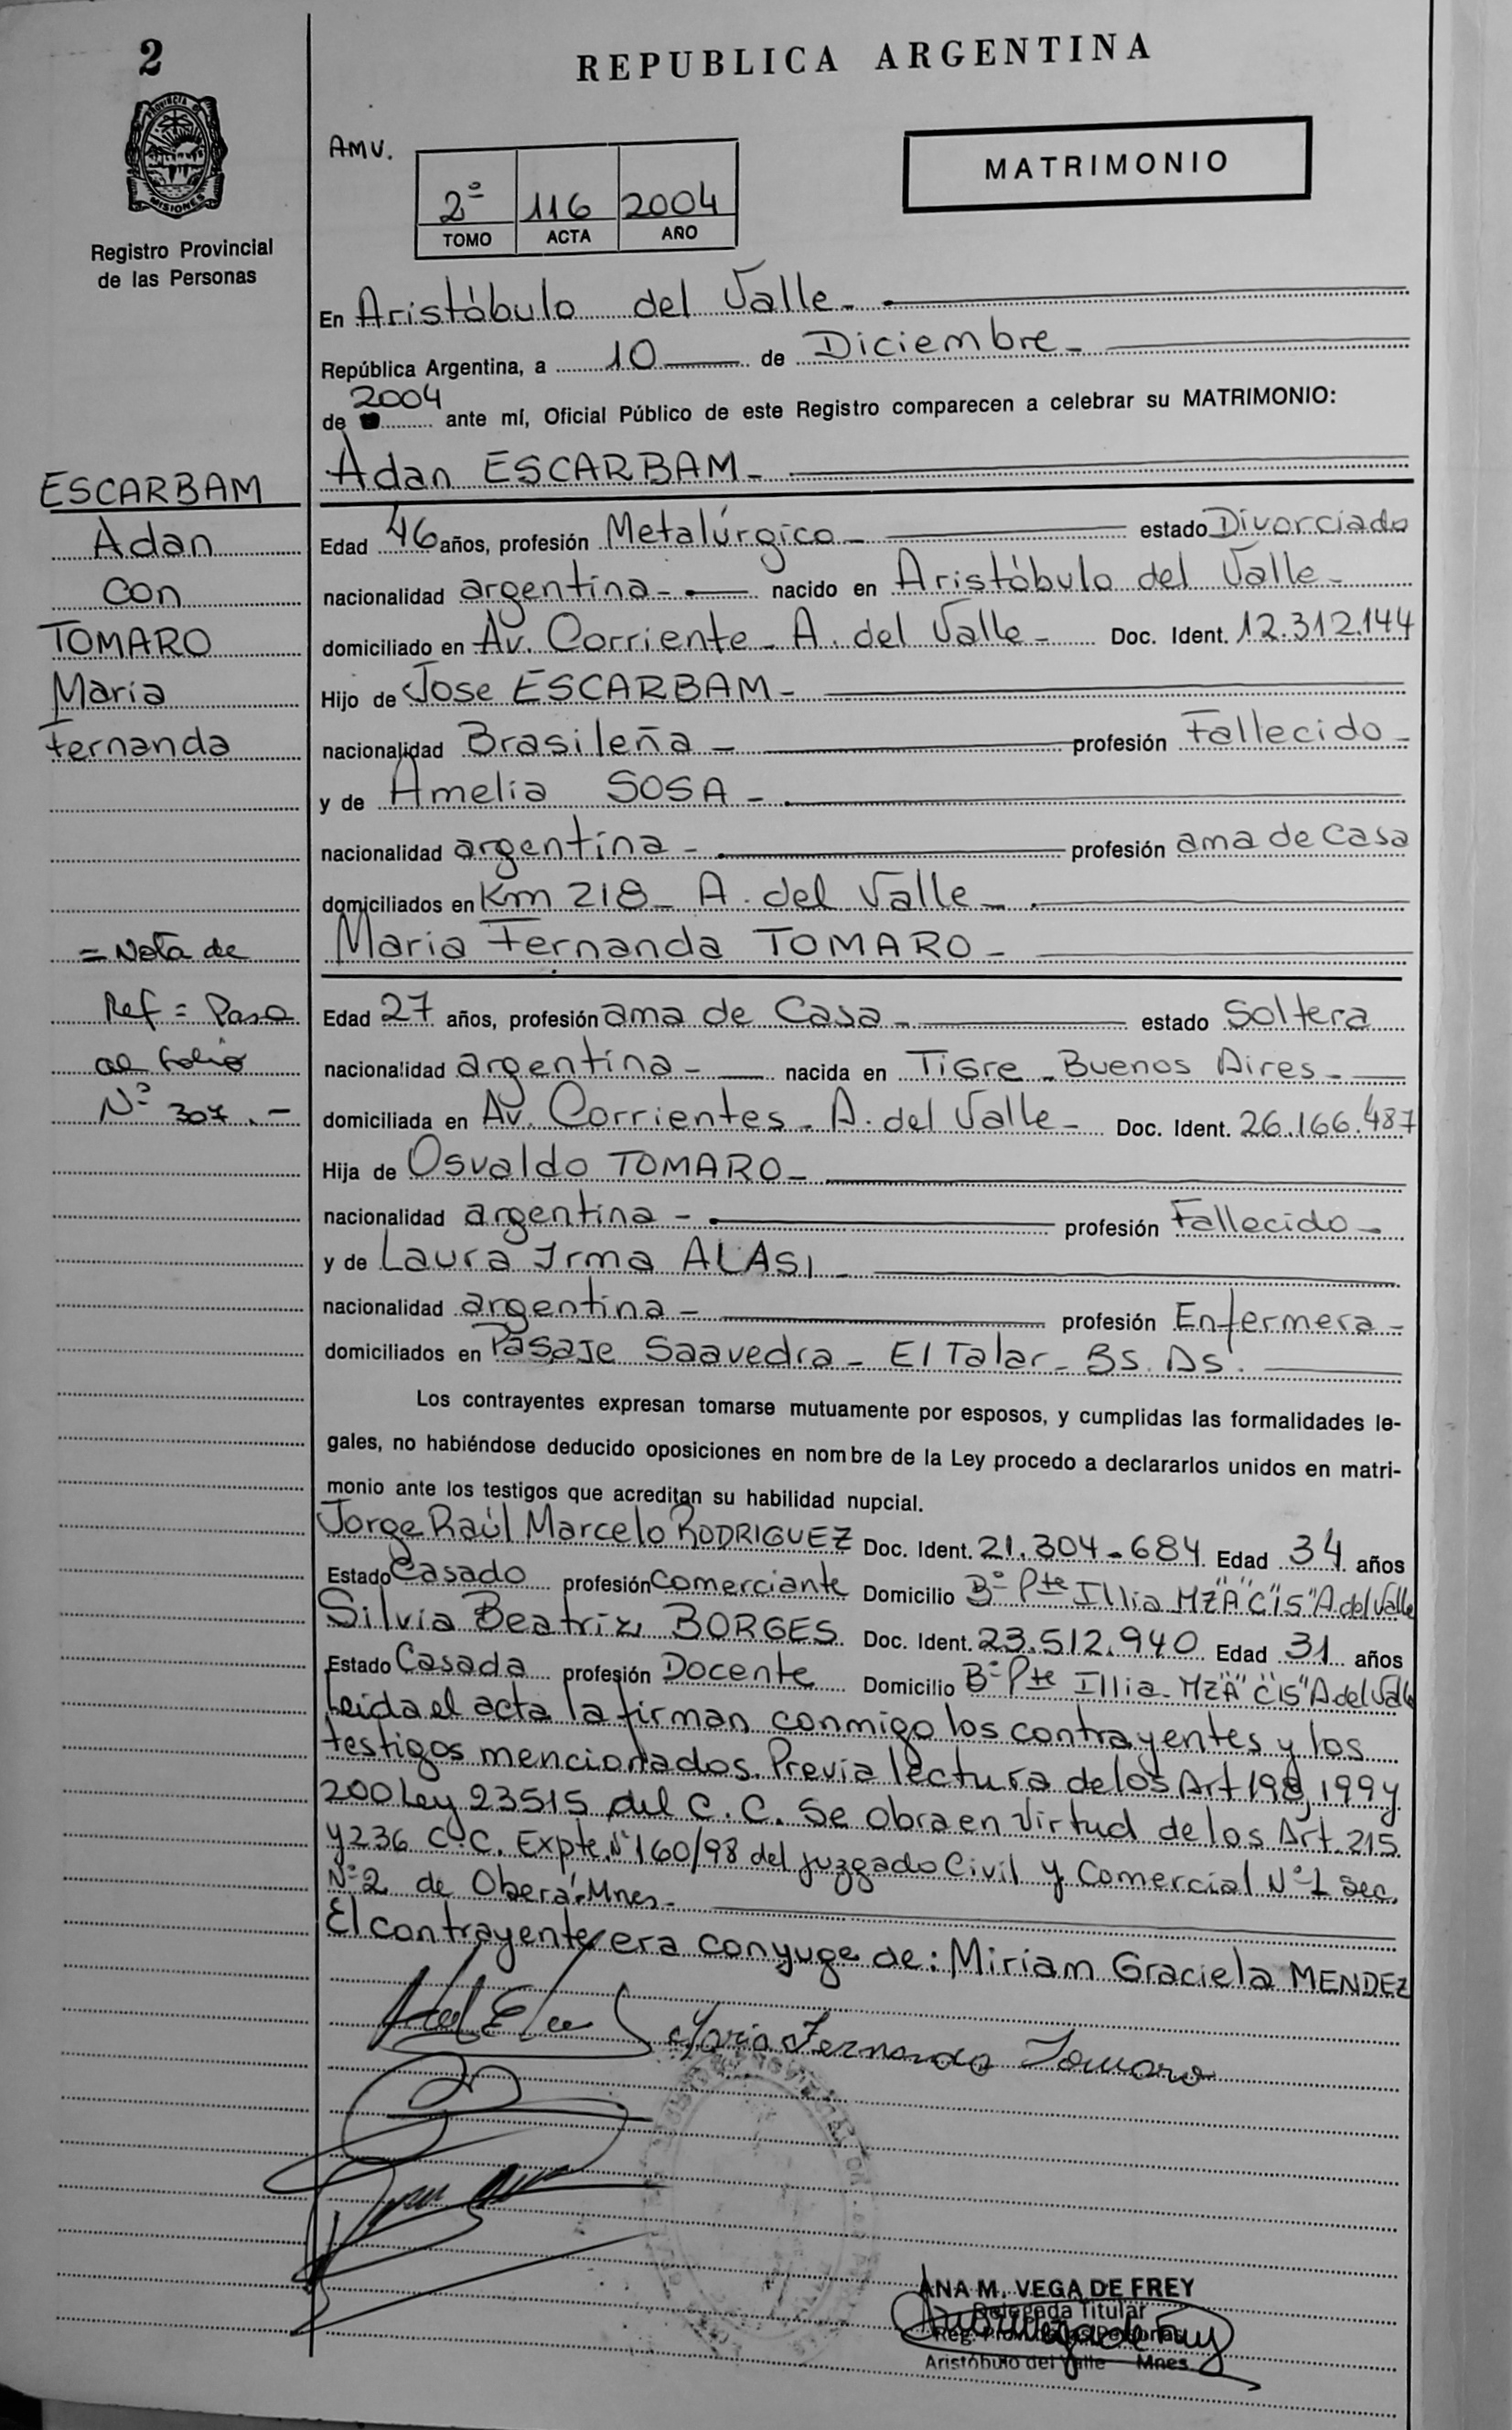 2
REPUBLICA ARGENTINA
PROVINCIA DE
MISIONES
Registro Provincial
de las Personas
AMV.
2º 116 2004
TOMO ACTA AÑO
MATRIMONIO
En Aristóbulo del Valle-
República Argentina, a 10 de Diciembre-
de 2004 ante mí, Oficial Público de este Registro comparecen a celebrar su MATRIMONIO:
Adan ESCARBAM-
ESCARBAM
Adan
con
TOMARO
Maria
Fernanda
Edad 46 años, profesión Metalúrgico- estado Divorciado
nacionalidad argentina- nacido en Aristóbulo del Valle-
domiciliado en Av. Corriente- A. del Valle- Doc. Ident. 12.312.144
Hijo de Jose ESCARBAM-
nacionalidad Brasileña- profesión Fallecido-
y de Amelia SOSA-
nacionalidad argentina- profesión ama de casa
domiciliados en Km 218- A. del Valle-
Maria Fernanda TOMARO-
= Nota de
Ref = Pasa
al folio
Nº 307.-
Edad 27 años, profesión ama de Casa- estado Soltera
nacionalidad argentina- nacida en Tigre-Buenos Aires-
domiciliada en Av. Corrientes- A. del Valle- Doc. Ident. 26.166.487
Hija de Osvaldo TOMARO-
nacionalidad argentina- profesión Fallecido-
y de Laura Irma ALASI-
nacionalidad argentina- profesión Enfermera-
domiciliados en Pasaje Saavedra- El Talar- Bs. As.
Los contrayentes expresan tomarse mutuamente por esposos, y cumplidas las formalidades le-
gales, no habiéndose deducido oposiciones en nombre de la Ley procedo a declararlos unidos en matri-
monio ante los testigos que acreditan su habilidad nupcial.
Jorge Raúl Marcelo RODRIGUEZ Doc. Ident. 21.304.684 Edad 34 años
Estado Casado profesión comerciante Domicilio Bº Pte Illia MZ"A" C"15" A del Valle
Silvia Beatriz BORGES Doc. Ident. 23.512.940 Edad 31 años
Estado Casada profesión Docente Domicilio Bº Pte Illia- MZ"A" C"15" A del Valle
Leida el acta la firman conmigo los contrayentes y los
testigos mencionados. Previa lectura de los Art 198, 199 y
200 Ley 23515 del C.C. Se obra en virtud de los Art. 215
y 236 C.C. Expte. Nº 160/98 del juzgado Civil y Comercial Nº 1 sec.
Nº 2 de Oberá-Mnes-
El contrayente era conyuge de: Miriam Graciela MENDEZ
Maria Fernanda Tomaro
ANA M. VEGA DE FREY
Delegada Titular
Reg. Provincial Personas
Aristóbulo del Valle Mnes